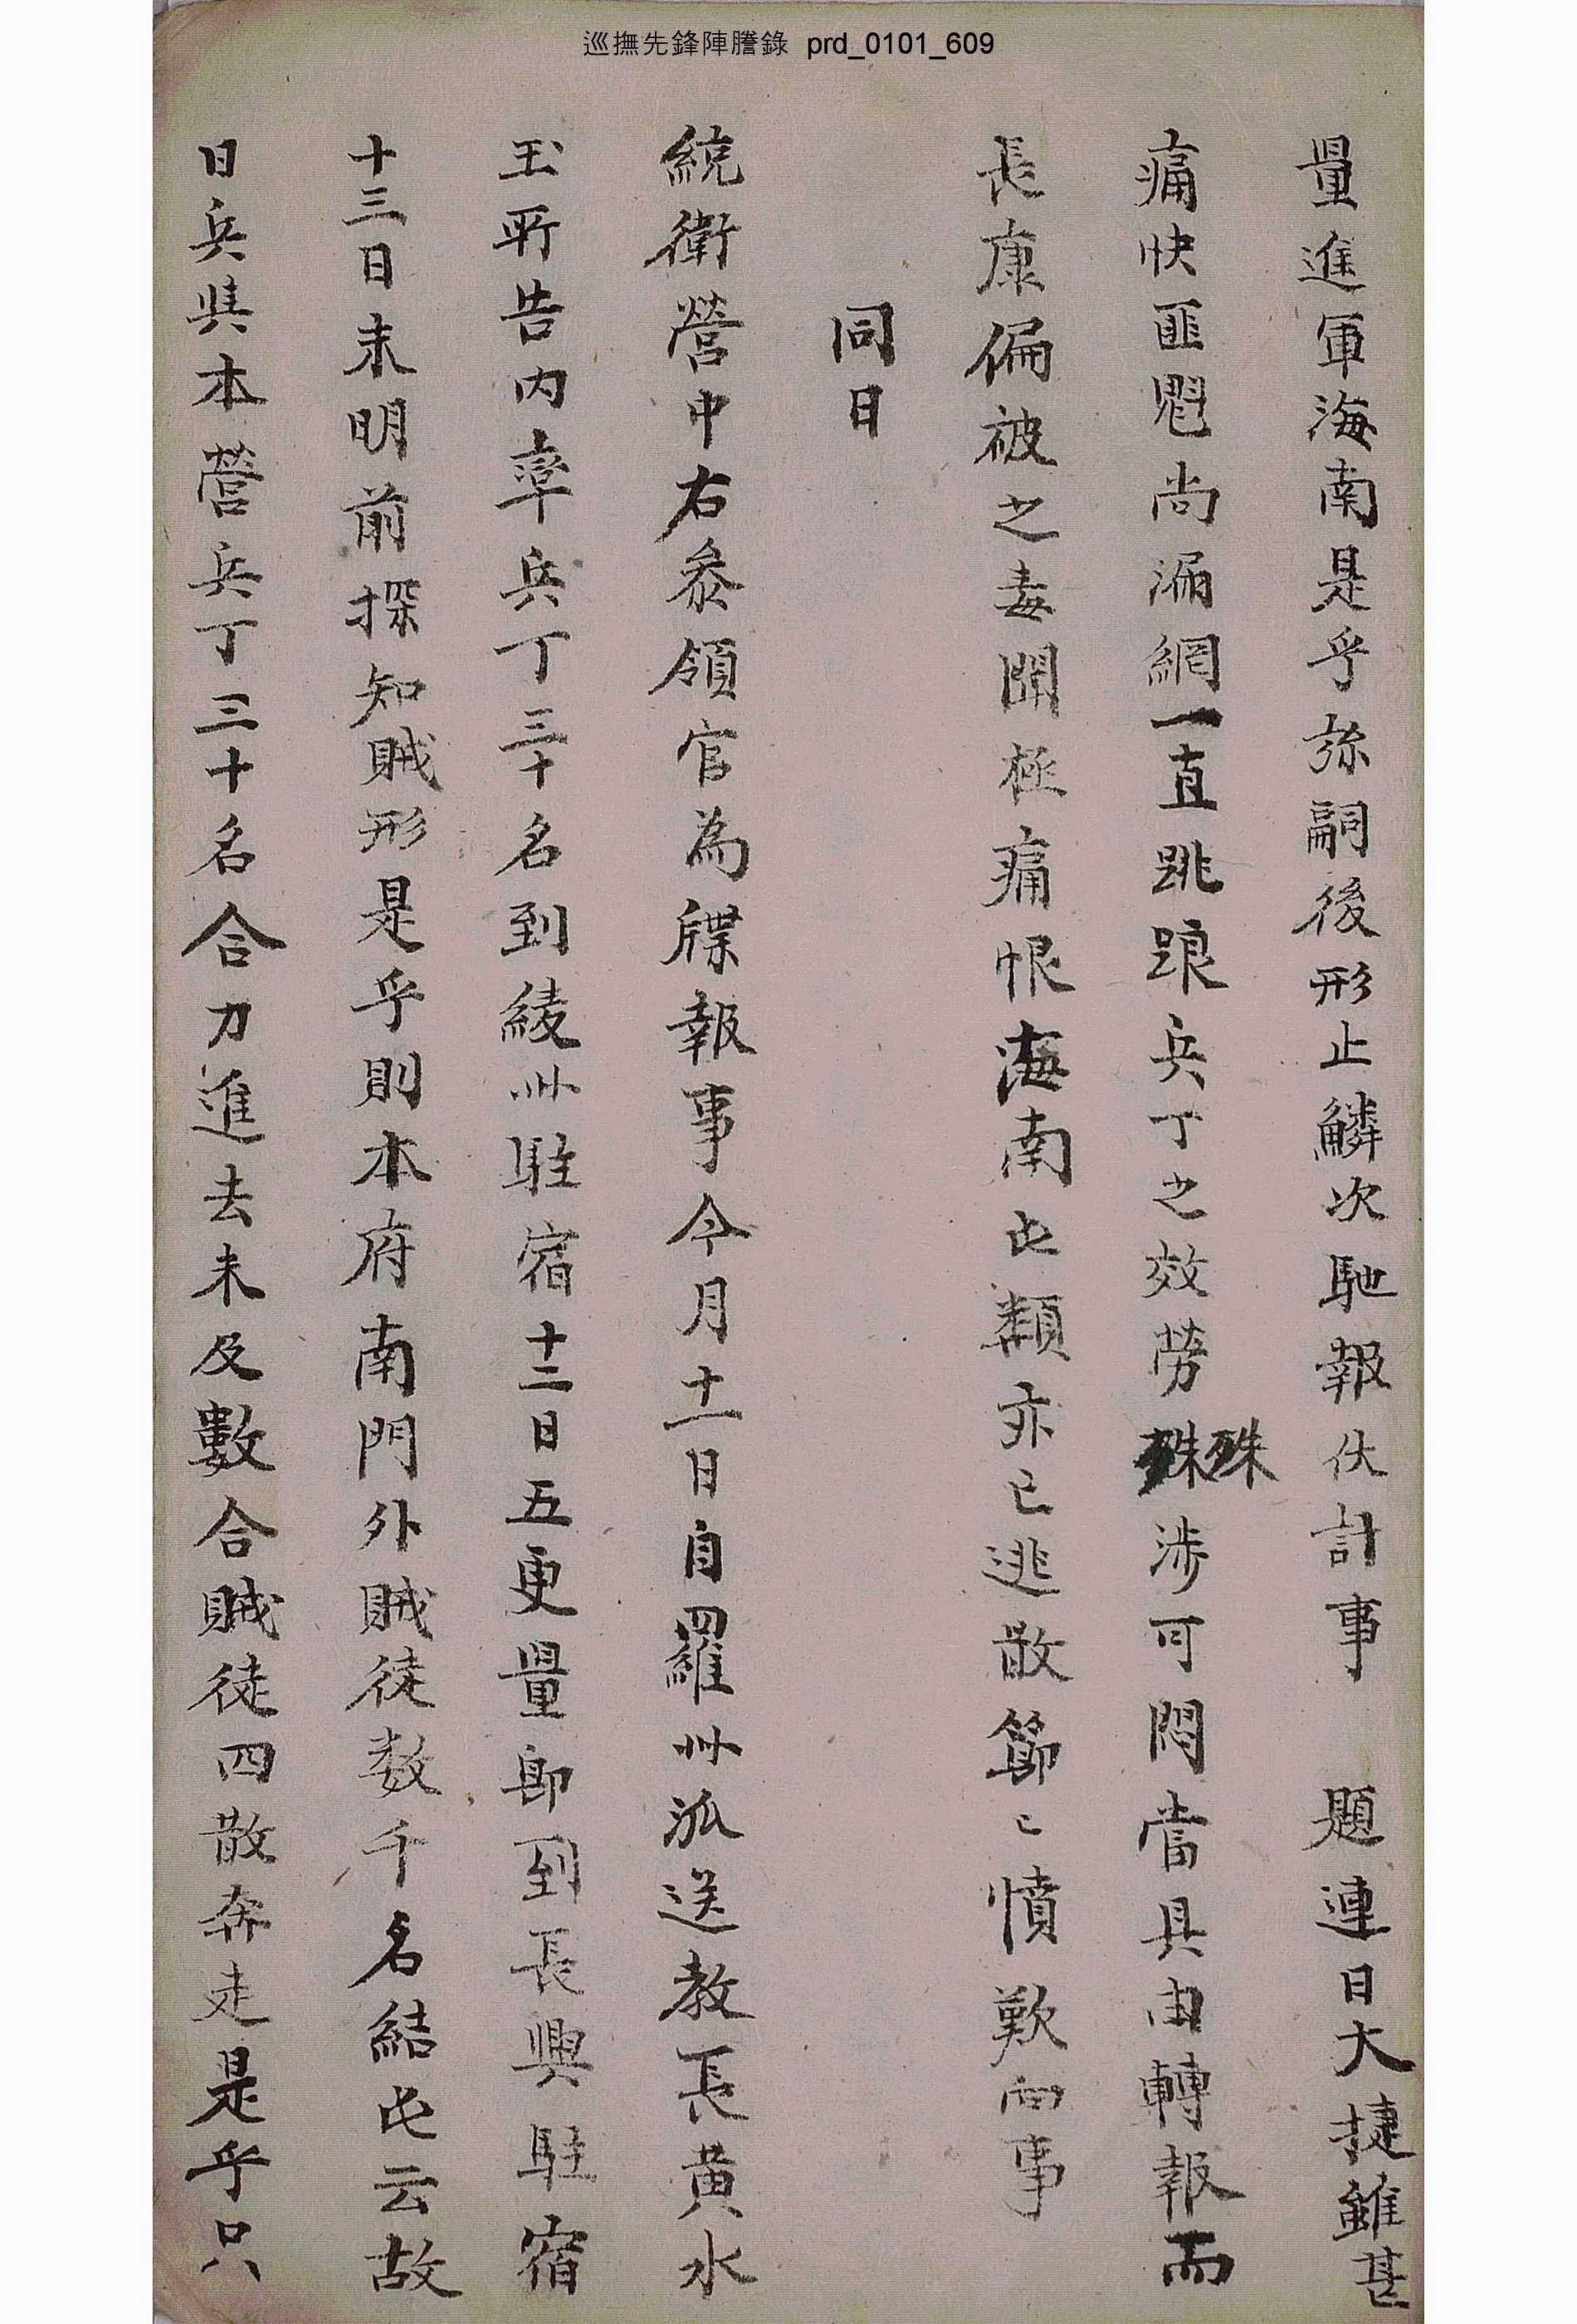 巡撫先鋒陣謄錄 prd_0101_609
量進軍海南是乎旀嗣後形止鱗次馳報伏計事 題連日大捷雖甚
痛快匪魁尚漏網一直跳踉兵丁之效勞殊殊涉可悶當具由轉報而
長康偏被之毒聞極痛恨海南屯類亦已逃散節〻憤歎向事
同日
統衛營中右叅領官為牒報事今月十一日自羅州派送教長黃水
玉所告內率兵丁三十名到綾州駐宿十二日五更量卽到長興駐宿
十三日未明前探知賊形是乎則本府南門外賊徒数千名結屯云故
日兵與本營兵丁三十名合力進去未及數合賊徒四散奔走是乎只